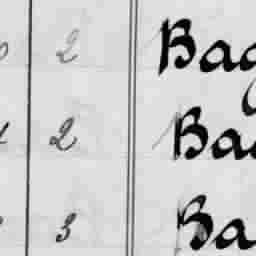 2 Bag
2 Ba
3 Ba